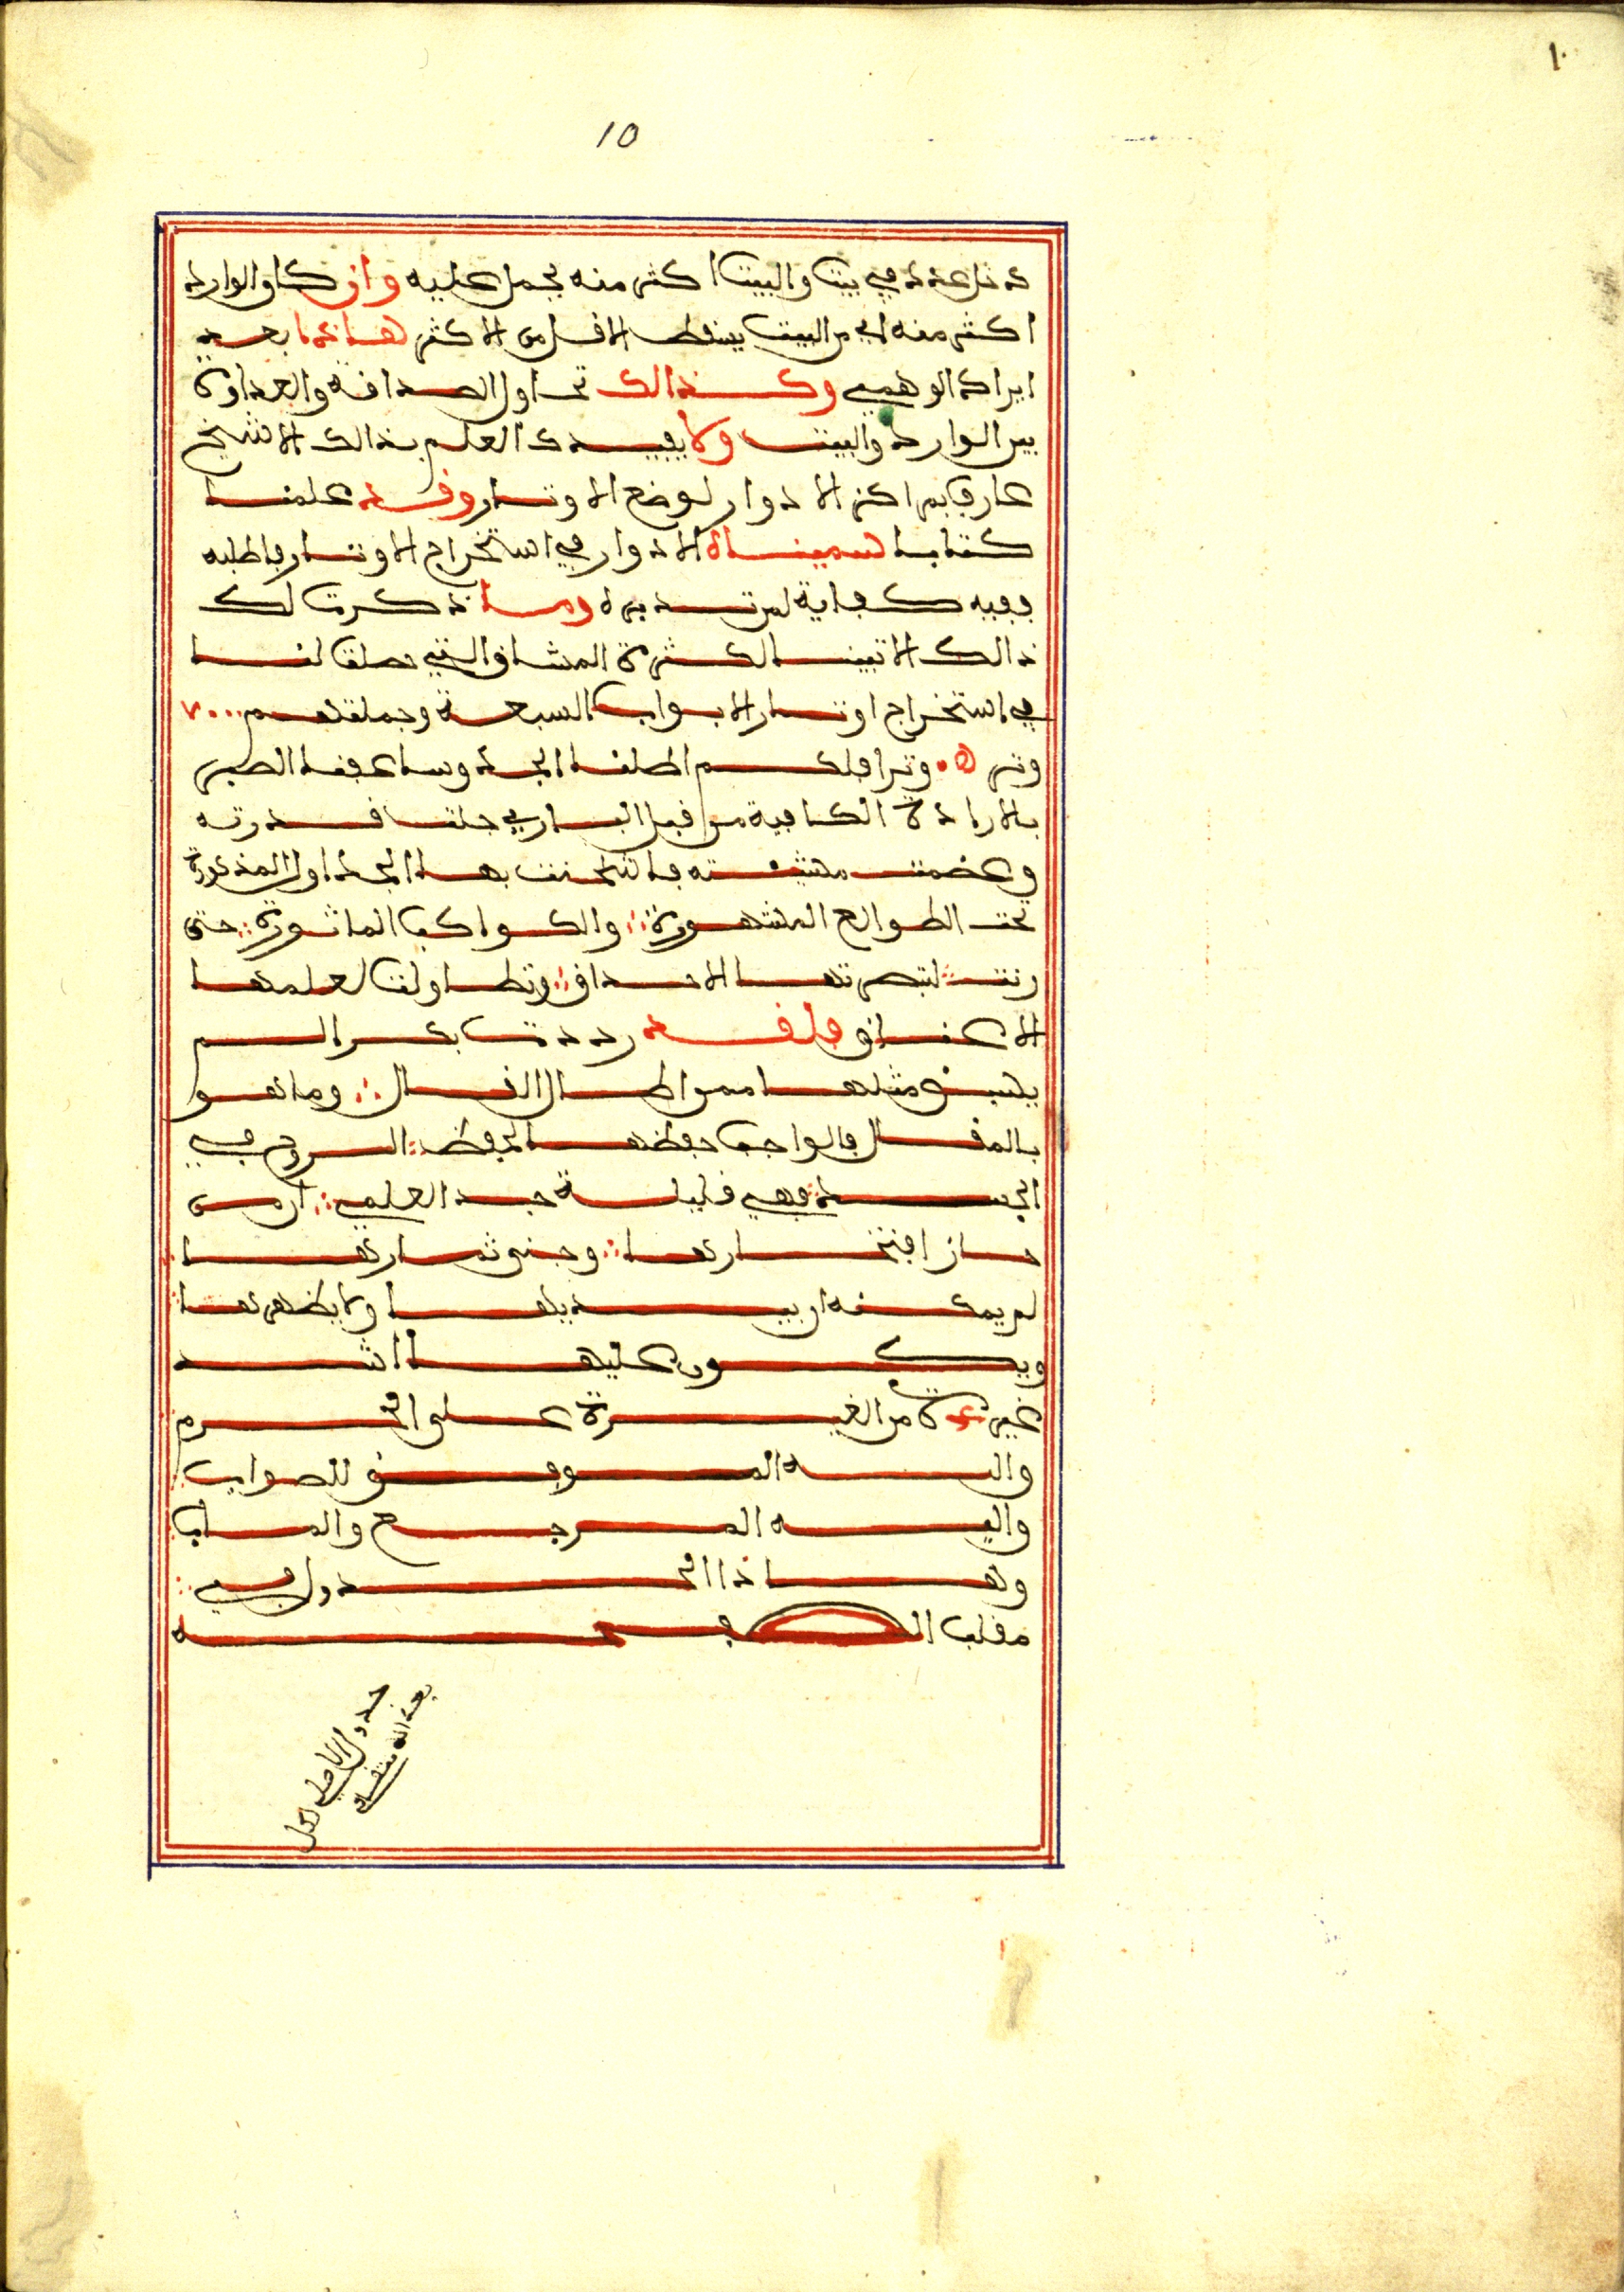 ١٠
10
دخل عدد في بيت والبيت اكثر منه يحمل عليه وان كان الوارد
اكثر منه اي من البيت يسقط الاقل من الاكثر هاذا بعد
ايراد الوهمي وكذالك تحاول الصداقة والعداوة
بين الوارد والبيت ولا يفيدك العلم بذالك الا شيخ
عارف بمراكز الادوار لوضع الاوتار وقد علمنا
كتابا سميناه الادوار في استخراج الاوتار فاطلبه
ففيه كفاية لمن تدبره وما ذكرت لك
ذالك الا تبينا لكثرة المشاق التي حصلت لنا
في استخراج اوتار الابواب السبعة وجملتهم ٧٠٠٠
وتر
بالارادة الكافية من قبل الباري جلت قدرته
مشيئته بها الجداول المذكورة
تحت الطوالع المشهورة والكواكب الماثورة حتى
رنت لتبصرتها الاحداق وتطاولت لعلمها
الاعناق فلقد رددت بحرا لم
يسبق مثلها وما هو
بالمقال فالواجب حفظها كحفظ الروح في
الجسد فهي قليلة
حاز افتخارها وجنى ثمارها
لم يمكنه ان يبديها ولا يظهرها
ويكون عليها اشد
غيرة من الغيرة على الحرم
والله الموفق للصواب
واليه المرجع والمئاب
وهاذا الجدول في
مقلب الصفحة